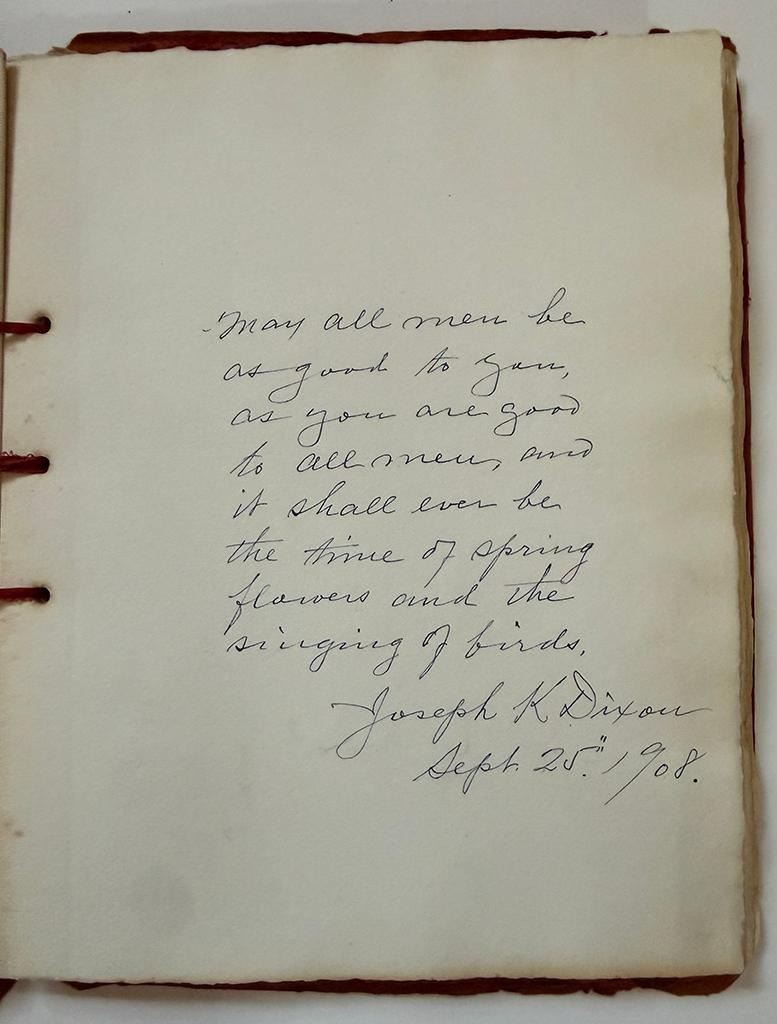 May all men be
as good to you,
as you are good
to all men, and
it shall ever be
the time of spring
flowers and the
singing of birds.
Joseph K Dixon
Sept. 25." 1908.